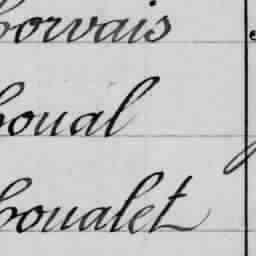 Corvais
Coual
Coualet